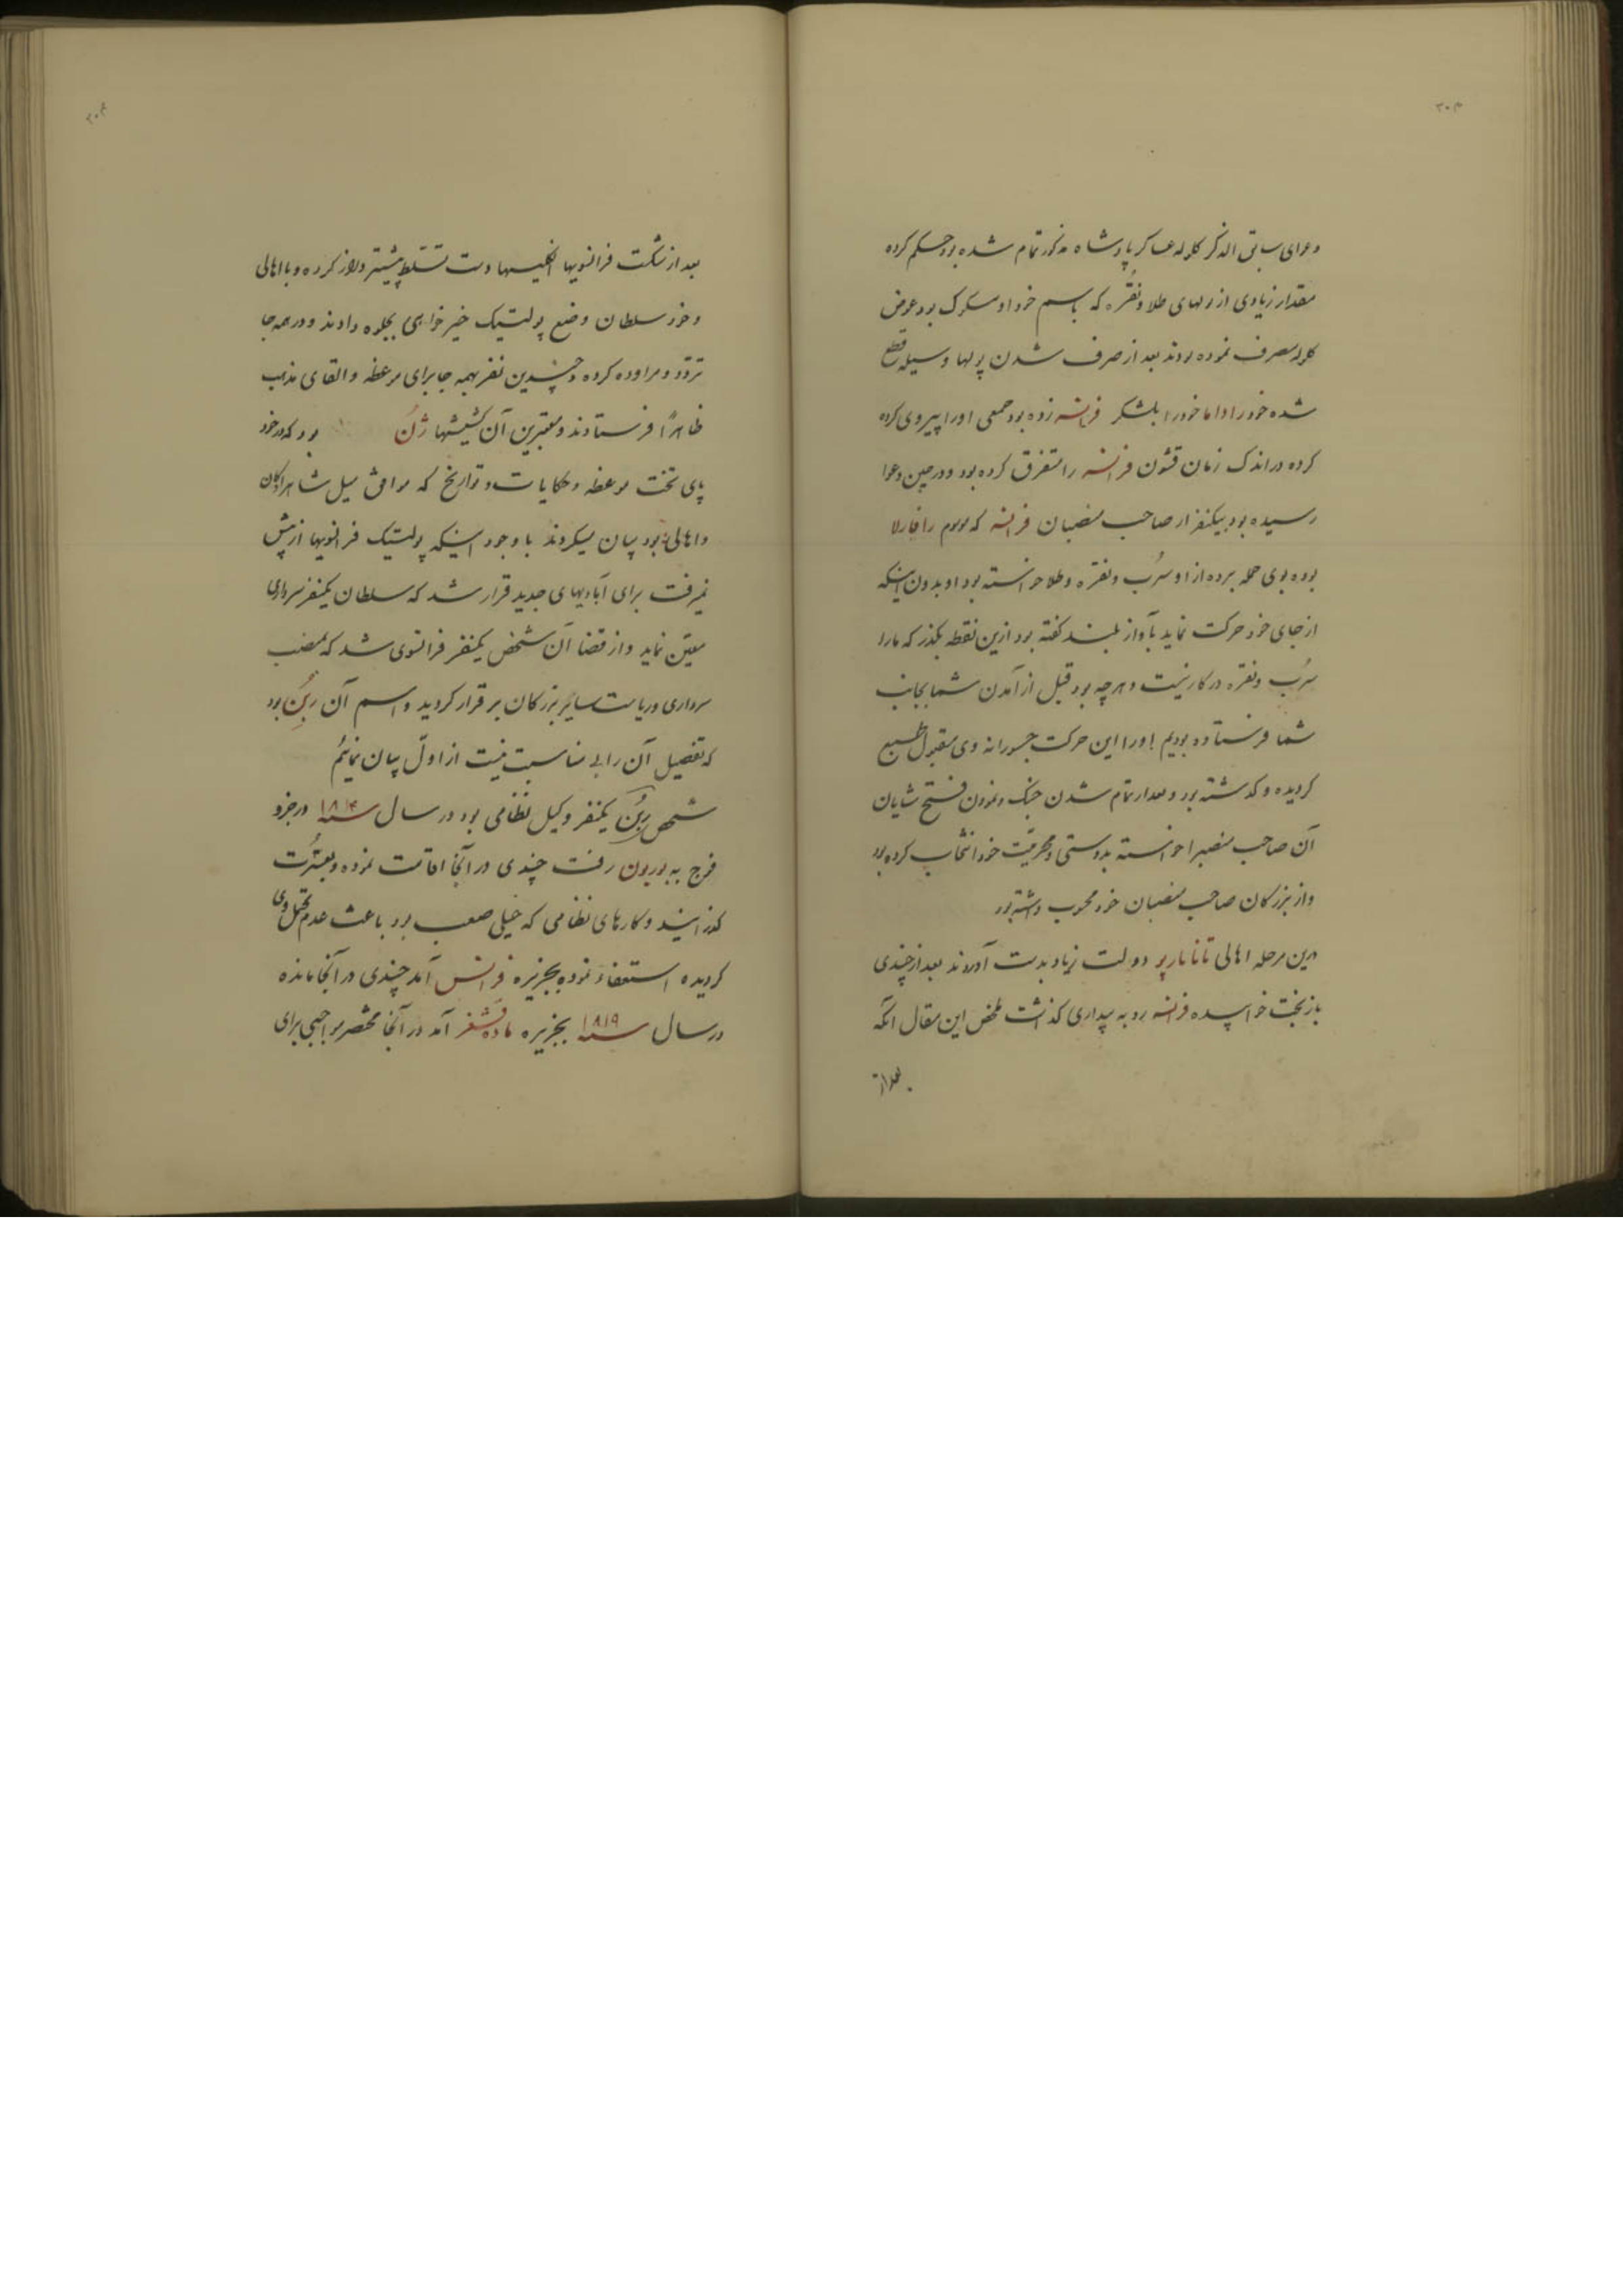 ۳۰۳
دعوای سابق الذکر کلوله عساکر پادشاه مذکور تمام شده بود حکم کرده
مقدار زیادی از پولهای طلا و نقره که باسم خود او مسکوک بود عوض
کلوله مصرف نموده بودند بعد از صرف شدن پولها وسیله قطع
شده خود را خود را بلشکر فرانسه زده بود جمعی او را پیروی کرده
کرده در اندک زمان قشون فرانسه را متفرق کرده بود و در حین دعوا
رسیده بود بیکنفر از صاحب منصبان فرانسه که موسوم
بوده بوی حمله برده از او سُرب و نقره و طلا خواسته بود او بدون اینکه
از جای خود حرکت نماید بآواز بلند کفته بود ازین نقطه بگذر که ما را
سُرب و نقره در کار نیست و هر چه بود قبل از آمدن شما بجانب
شما فرستاده بودیم او را این حرکت جسورانه وی مقبول طبع
کردیده و کذشته بود و بعد از تمام شدن جنک و نمودن فتح شایان
آن صاحب منصبرا خواسته بدوستی و محرمیّت خود انتخاب کرده بود
و از بزرکان صاحب منصبان خود محسوب داشته بود
درین مرحله اهالی تاناناریو دولت زیاد بدست آوردند بعد از چندی
باز بخت خوابیده فرانسه رو به بیداری کذاشت ملخص این مقال انکه
بعد از
۳۰۴
بعد از شکست فرانسویها انکلیسها دست تسلط پیشتر دراز کرده و با اهالی
و خود سلطان وضع پولتیک خیر خواهی بجلوه دادند و در همه جا
تردّد و مراوده کرده و چندین نفر بهمه جا برای موعظه و القای مذهب
ظاهراً فرستادند و معتبرین آن کشیشها ژُن بود که در خود
پای تخت موعظه و حکایات و تواریخ که موافق میل شاهزادکان
و اهالی بود بیان میکردند با وجود اینکه پولتیک فرانسویها از پیش
نمیرفت برای آبادیهای جدید قرار شد که سلطان یکنفر سرداری
معیّن نماید و از قضا آن شخص یکنفر فرانسوی شد که بمنصب
سرداری و ریاست سایر بزرکان برقرار کردید و اسم آن ربُن بود
که تفصیل آن را بی مناسبت نیست از اول بیان نمائیم
شخص ربُن یکنفر وکیل نظامی بود در سال سنه ۱۸۱۴ در جزو
فوج به بوربون رفت چندی در آنجا اقامت نموده و بعسرت
کذرانید و کارهای نظامی که خیلی صعب بود باعث عدم تحمّل وی
کردیده استعفاء نموده بجزیره فرانس آمد چندی در آنجا مانده
در سال سنه ۱۸۱۹ بجزیره ماده قشقر آمد در آنجا مختصر مواجبی برای